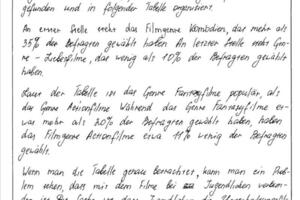 gefunden und in folgender Tabelle präsentiert.
An erster Stelle steht das Filmgenre Komödien, das mehr als
35% der Befragten gewählt haben. An letzter Stelle steht Gen-
re - Liebesfilme, das wenig als 10% der Befragten gewählt
haben.
Laut der Tabelle ist das Genre Fantasyfilme populär, als
das Genre Actionfilme. Während das Genre Fantasyfilme et-
was mehr als 20% der Befragten gewählt haben, haben
das Filmgenre Actionfilme etwa 11% wenig der Befragten
gewählt.
Wenn man die Tabelle genau betrachtet, kann man ein Problem
sehen, dass mit dem Filme bei Jugendlichen verbun-
den ist. Die